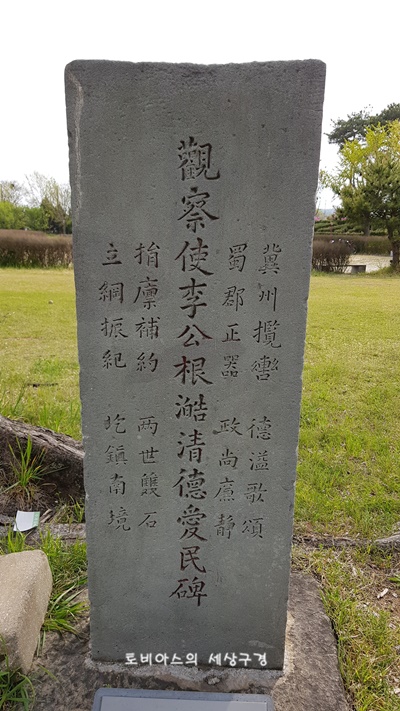 冀州攬轡 德溢歌頌
蜀郡正器 政尚廉靜
觀察使李公根澔清德愛民碑
捐廩補約 两世雙石
立綱振紀 屹鎮南境
토비아스의 세상구경